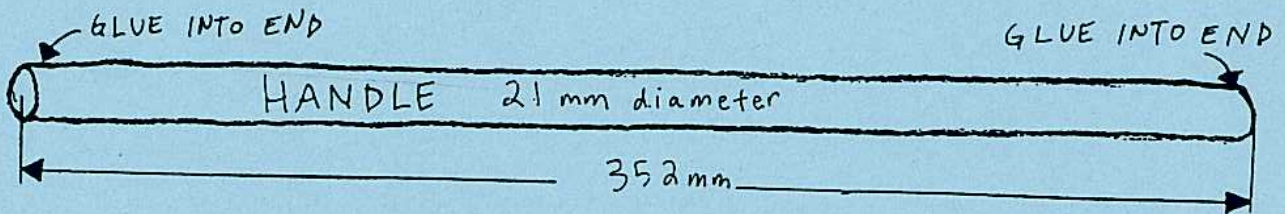 GLUE INTO END
GLUE INTO END
HANDLE 21 mm diameter
352mm